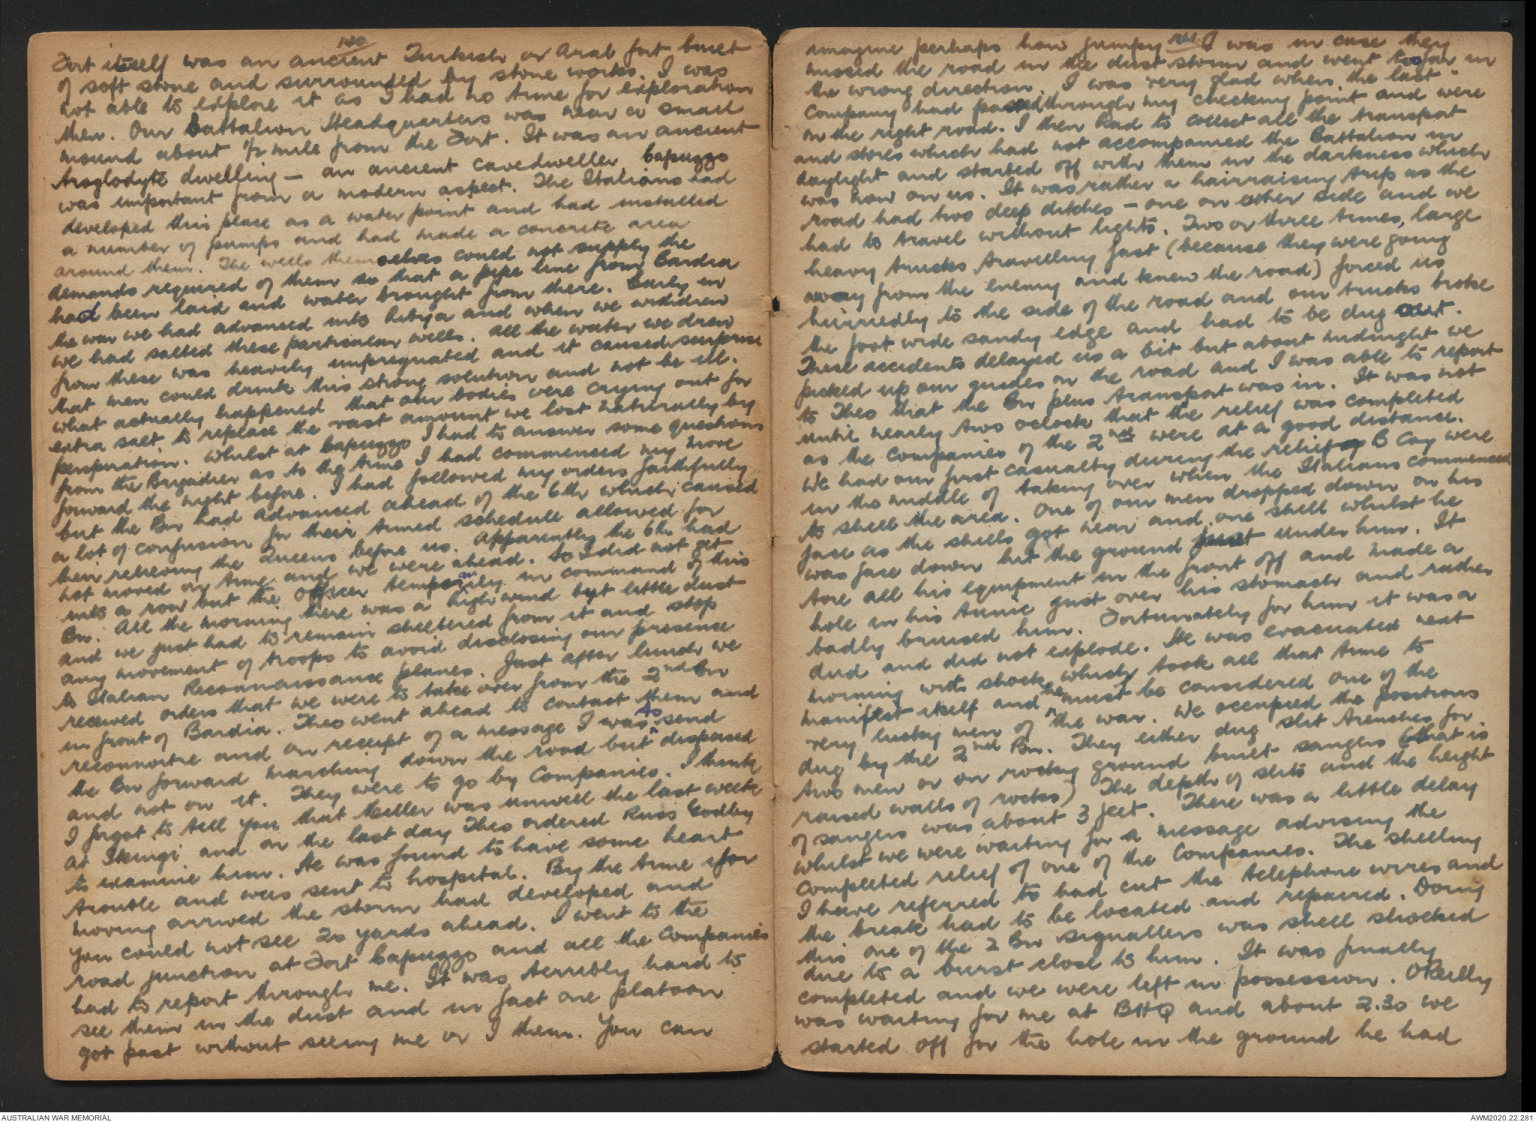 140
Fort itself was an ancient Turkish or Arab fort built
of soft stone and surrounded by stone works. I was
not able to explore it as I had no time for exploration
then. Our Battalion Headquarters was near a small
mound about 1/2 mile from the Fort. It was an ancient
troglodyte dwelling – an ancient cavedweller. Capuzzo
was important from a modern aspect. The Italians had
developed this place as a water point and had installed
a number of pumps and had made a concrete area
around them. The wells themselves could not supply the
demands required of them so that a pipe line from Bardia
had been laid and water brought from there. Early in
the war we had advanced into Libya and when we withdrew
we had salted these particular wells. All the water we drew
from these was heavily impregnated and it caused surprise
that men could drink this strong solution and not be ill.
what actually happened that our bodies were crying out for
extra salt to replace the vast amount we lost naturally by
perspiration. Whilst at Capuzzo I had to answer some questions
from the Brigadier as to the time I had commenced my move
forward the night before. I had followed my orders faithfully
but the Bn had advanced ahead of the 6th which caused
a lot of confusion for their timed schedule allowed for
their relieving the Queens before us. Apparently the 6th had
not moved on time and we were ahead. So I did not get
into a row but the officer temporarily in command of this
Bn. All the morning there was a high wind but little dust
and we just had to remain sheltered from it and stop
any movement of troops to avoid disclosing our presence
to Italian Reconnaissance planes. Just after lunch we
received orders that we were to take over from the 2nd Bn
in front of Bardia. Theo went ahead to contact them and
reconnoitre and on receipt of a message I was to send
the Bn forward marching down the road but dispersed
and not on it. They were to go by Companies. I think
I forgot to tell you that Keller was unwell the last week
at Ikingi and on the last day Theo ordered Russ Godby
to examine him. He was found to have some heart
trouble and was sent to hospital. By the time for
moving arrived the storm had developed and
you could not see 20 yards ahead. I went to the
road junction at Fort Capuzzo and all the Companies
had to report through me. It was terribly hard to
see them in the dust and in fact one platoon
got past without seeing me or I them. You can
141
imagine perhaps how jumpy I was in case they
missed the road in the dust storm and went too far in
the wrong direction. I was very glad when the last
company had passed through my checking point and were
on the right road. I then had to collect all the transport
and stores which had not accompanied the Battalion in
daylight and started off with them in the darkness which
was now on us. It was rather a hairraising trip as the
road had two deep ditches – one on either side and we
had to travel without lights. Two or three times, large
heavy trucks travelling fast (because they were going
away from the enemy and knew the road) forced us
hurriedly to the side of the road and our trucks broke
the foot wide sandy edge and had to be dug out.
These accidents delayed us a bit but about midnight we
picked up our guides on the road and I was able to report
to Theo that the Bn plus transport was in. It was not
until nearly two oclock that the relief was completed
as the Companies of the 2nd were at a good distance.
We had our first casualty during the relief. B Coy were
in the middle of taking over when the Italians commenced
to shell the area. One of our men dropped down on his
face as the shells got near and one shell whilst he
was face down hit the ground just under him. It
tore all his equipment in the front off and made a
hole in his tunic just over his stomach and rather
badly bruised him. Fortunately for him it was a
dud and did not explode. He was evacuated next
morning with shock which took all that time to
manifest itself and he must be considered one of the
very lucky men of the war. We occupied the positions
dug by the 2nd Bn. They either dug slit trenches for
two men or on rocky ground built sangers (that is
raised walls of rocks) The depth of slits and the height
of sangers was about 3 feet. There was a little delay
whilst we were waiting for a message advising the
completed relief of one of the Companies. The shelling
I have referred to had cut the telephone wires and
the break had to be located and repaired. Doing
this one of the 2 Bn signallers was shell shocked
due to a burst close to him. It was finally
completed and we were left in possession. OReilly
was waiting for me at BHQ and about 2.30 we
started off for the hole in the ground he had
AUSTRALIAN WAR MEMORIAL
AWM2020.22.281